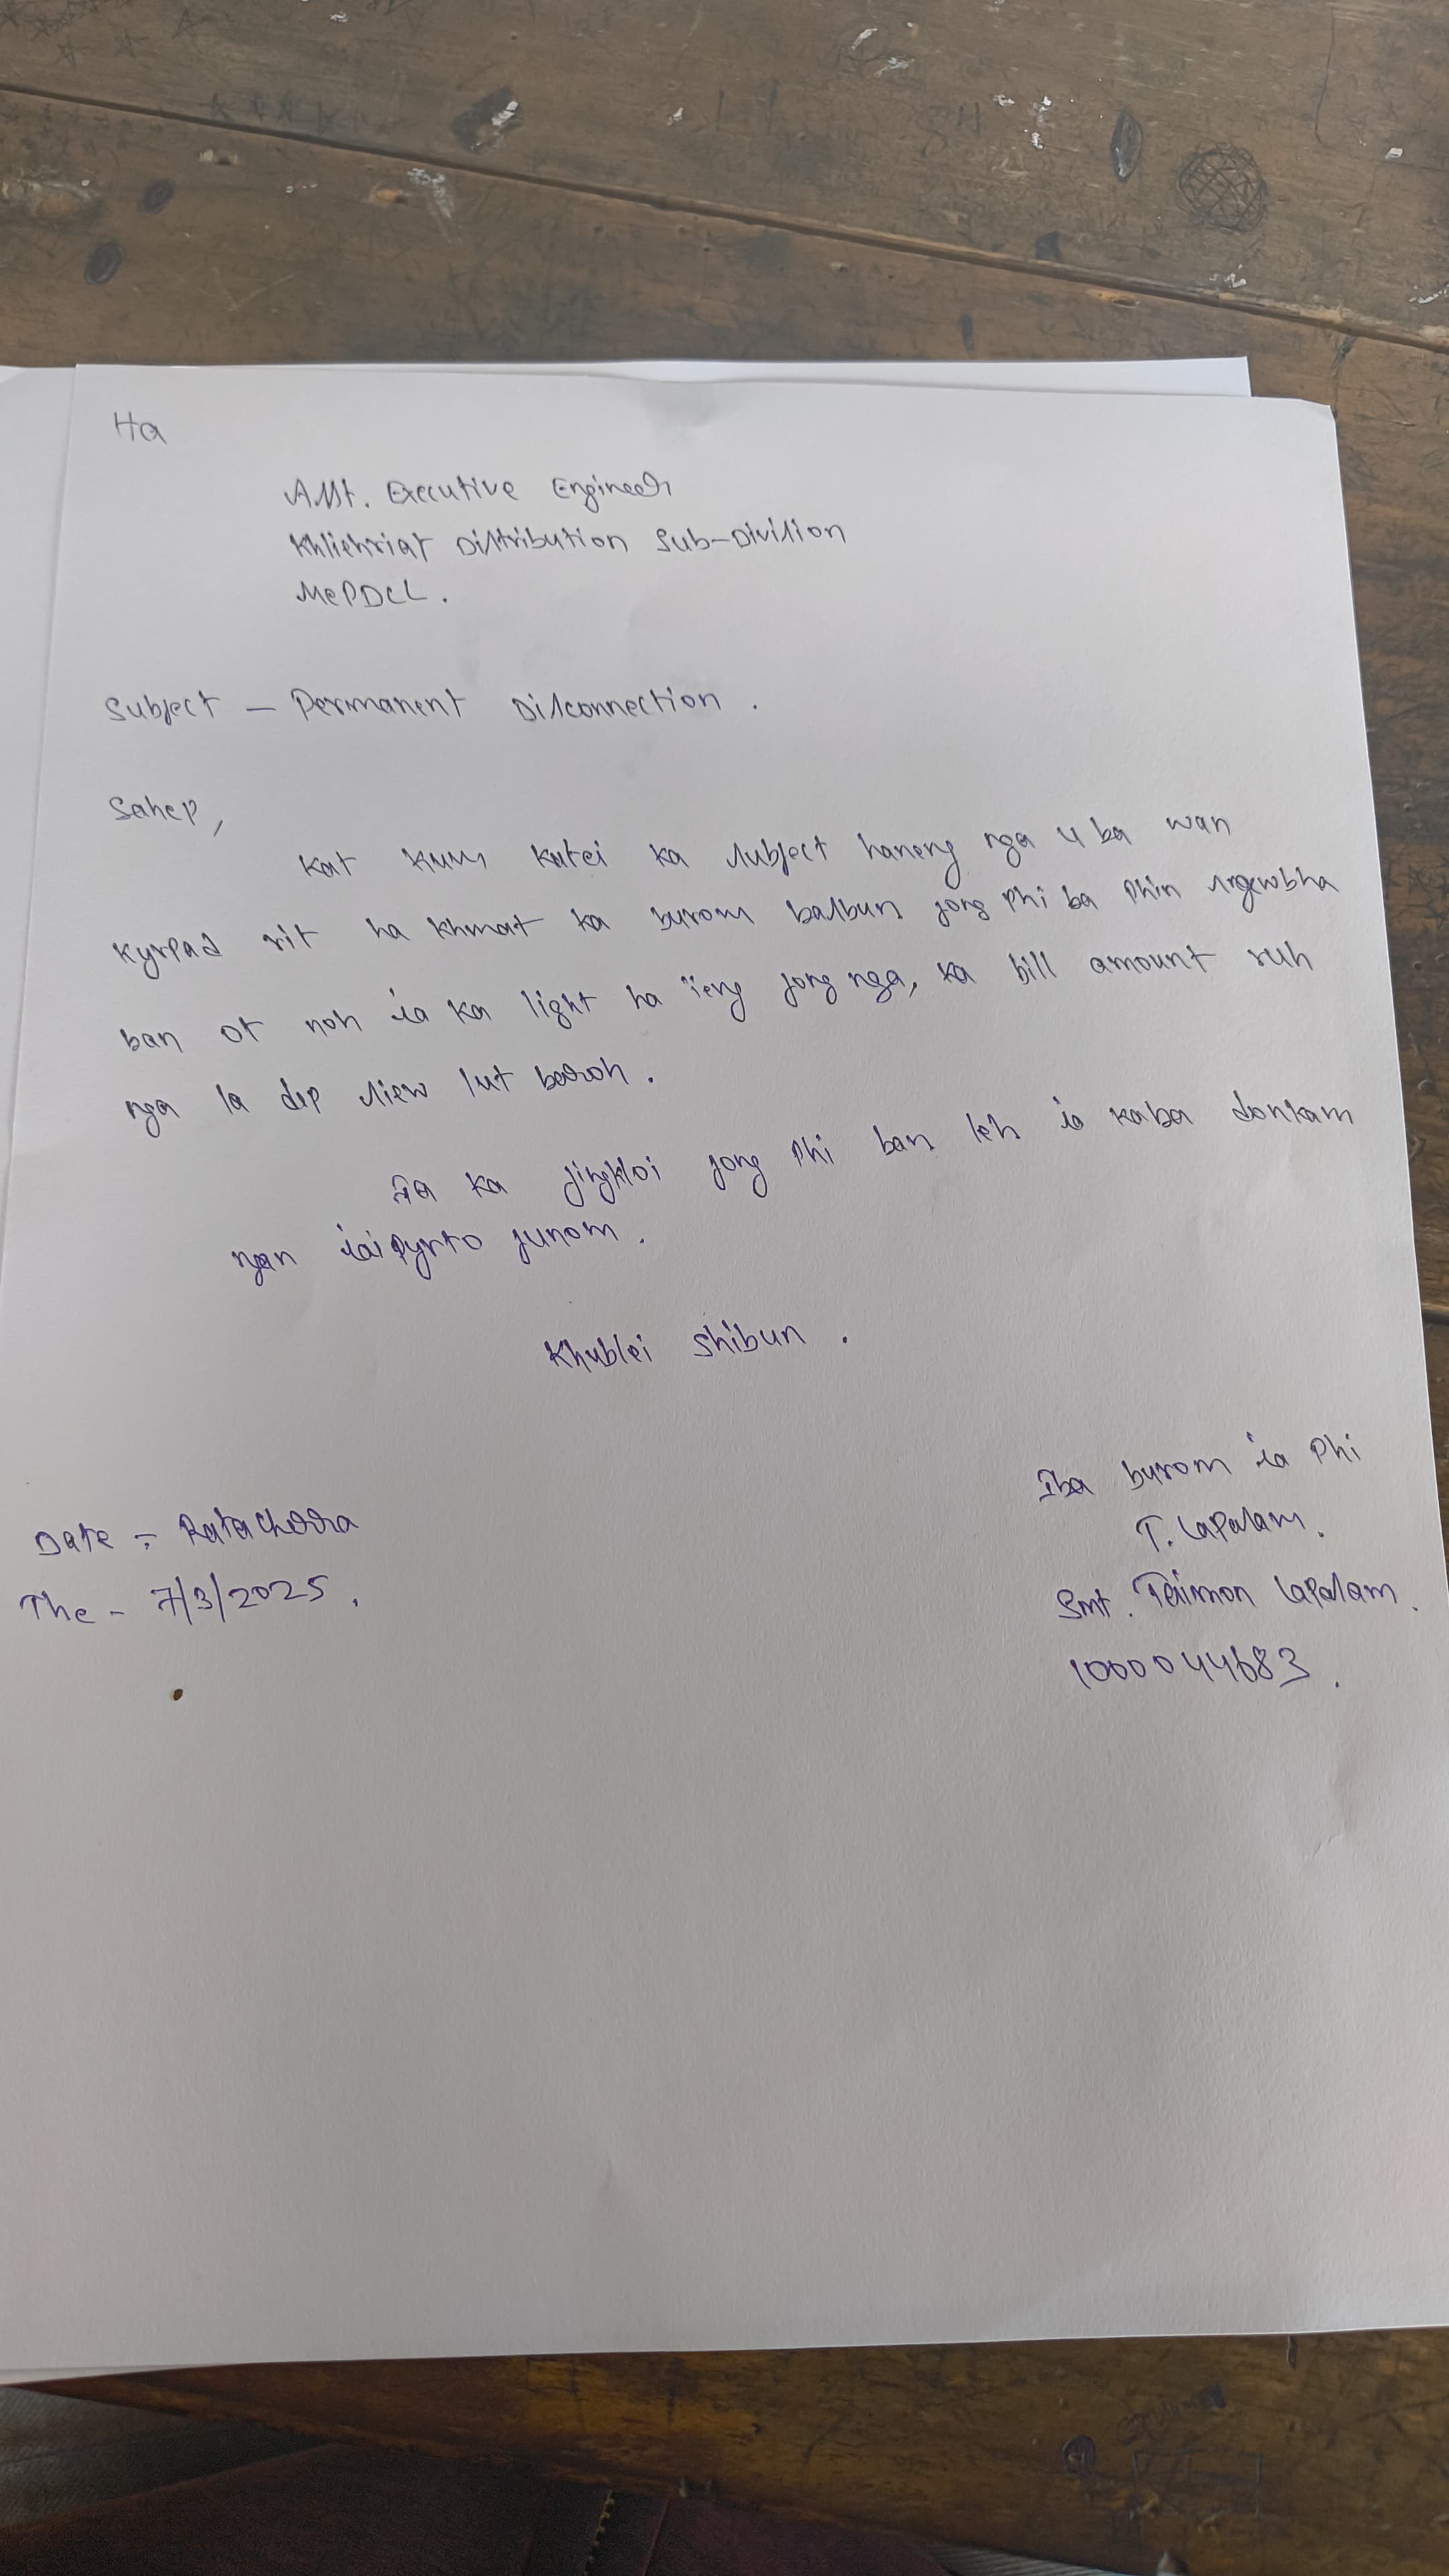 Ha
Asst. Executive Engineer
Khliehriat Distribution Sub-Division
MePDCL.
Subject - Permanent Disconnection.
Sahep,
Kat kum katei ka subject haneng nga u ba wan
kyrpad rit ha khmat ka burom balbun jong phi ba phin sngewbha
ban ot noh ia ka light ha ïeng jong nga, ka bill amount ruh
nga la dep siew lut baroh.
Ia ka jingkloi jong phi ban leh ia kaba donkam
ngan iai pyrto junom.
Khublei shibun.
Iba burom ia phi
T. Lapasam.
Smt. Teimon Lapasam.
1000044683.
Date :- Ratacherra
The - 7/3/2025.